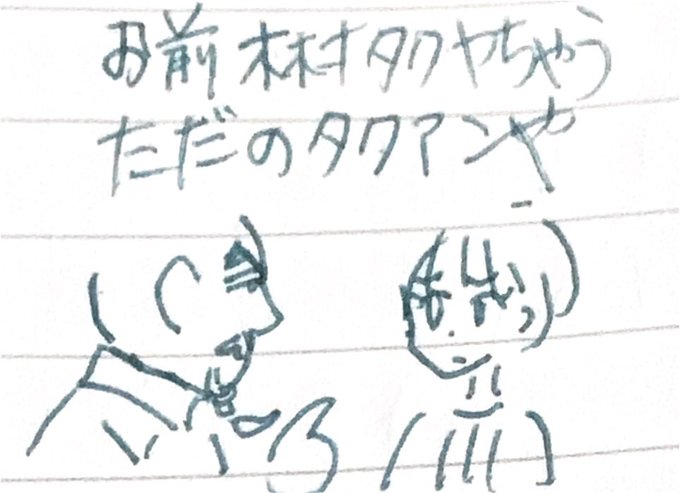 お前木村タクヤちゃう
ただのタクアンや